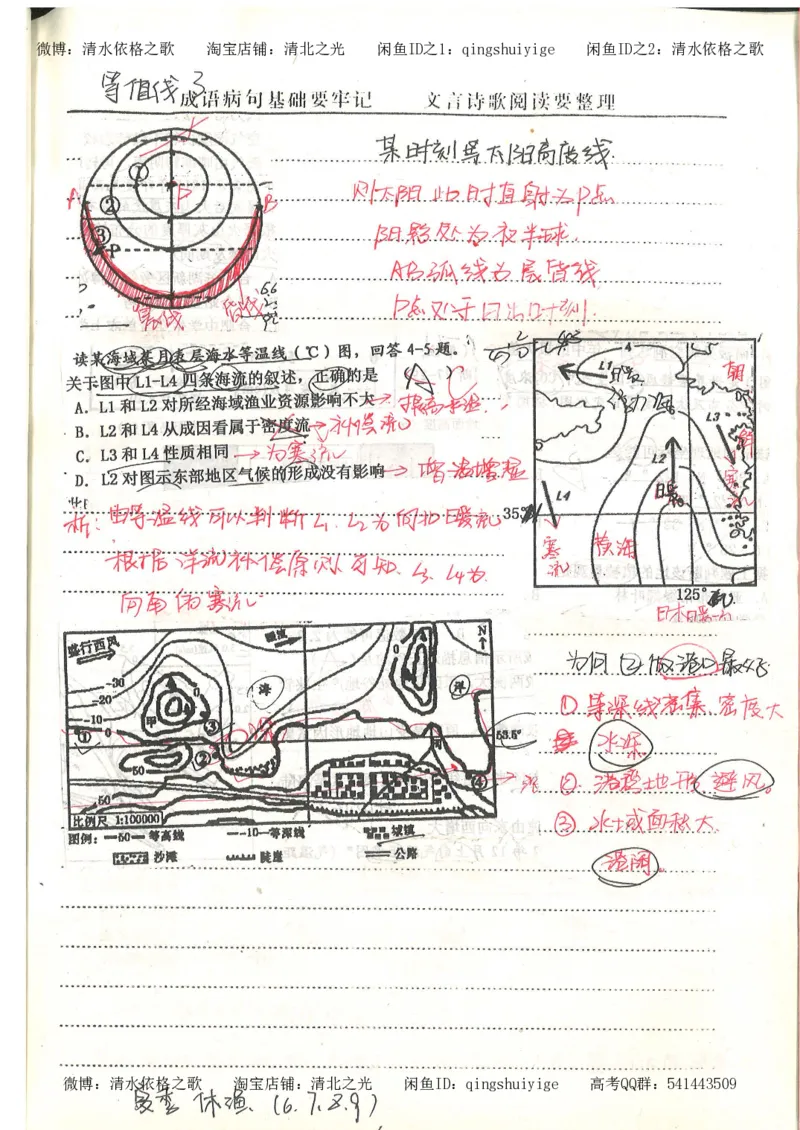 微博：清水依格之歌 淘宝店铺：清北之光 闲鱼ID之1：qingshuiyige 闲鱼ID之2：清水依格之歌
等值线3
成语病句基础要牢记 文言诗歌阅读要整理
某时刻等太阳高度线
则太阳此时直射为P点
阴影处为夜半球
AB弧线为晨昏线
① P
② A B
③ P
晨线 昏线
读某海域某月表层海水等温线（℃）图，回答4-5题。
关于图中L1-L4四条海流的叙述，正确的是
A
A．L1和L2对所经海域渔业资源影响不大
B．L2和L4从成因看属于密度流→补偿流
C．L3和L4性质相同→为寒流
D．L2对图示东部地区气候的形成没有影响→增温增湿
4 L1 L2 L3 L4
朝鲜
寒流
暖
黄海
寒流
35°
125°
析：由等温线可以判断L1、L2为向北暖流
根据洋流补偿原则可知，L3、L4为
向南的寒流
盛行西风 N
海 洋
-30 -20 -10 0
甲 ① ② ③ ④ 河
53.5°
50
50
比例尺 1:100000
图例：—50— 等高线 ---10--- 等深线 城镇
沙滩 陡崖 公路
为何②做港口最好
①等深线密集 密度大
水深
②港湾地形 避风。
③水域面积大
港阔。
微博：清水依格之歌 淘宝店铺：清北之光 闲鱼ID：qingshuiyige 高考QQ群：541443509
夏季休渔（6.7.8.9）